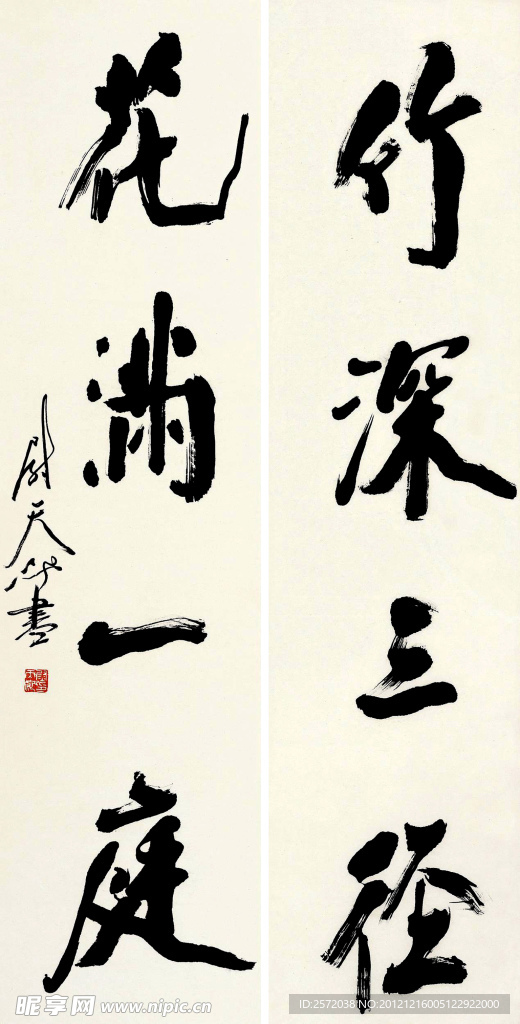 竹深三径
花满一庭
尉天池书
昵享网 www.nipic.cn
ID:2572038 NO:20121216005122922000